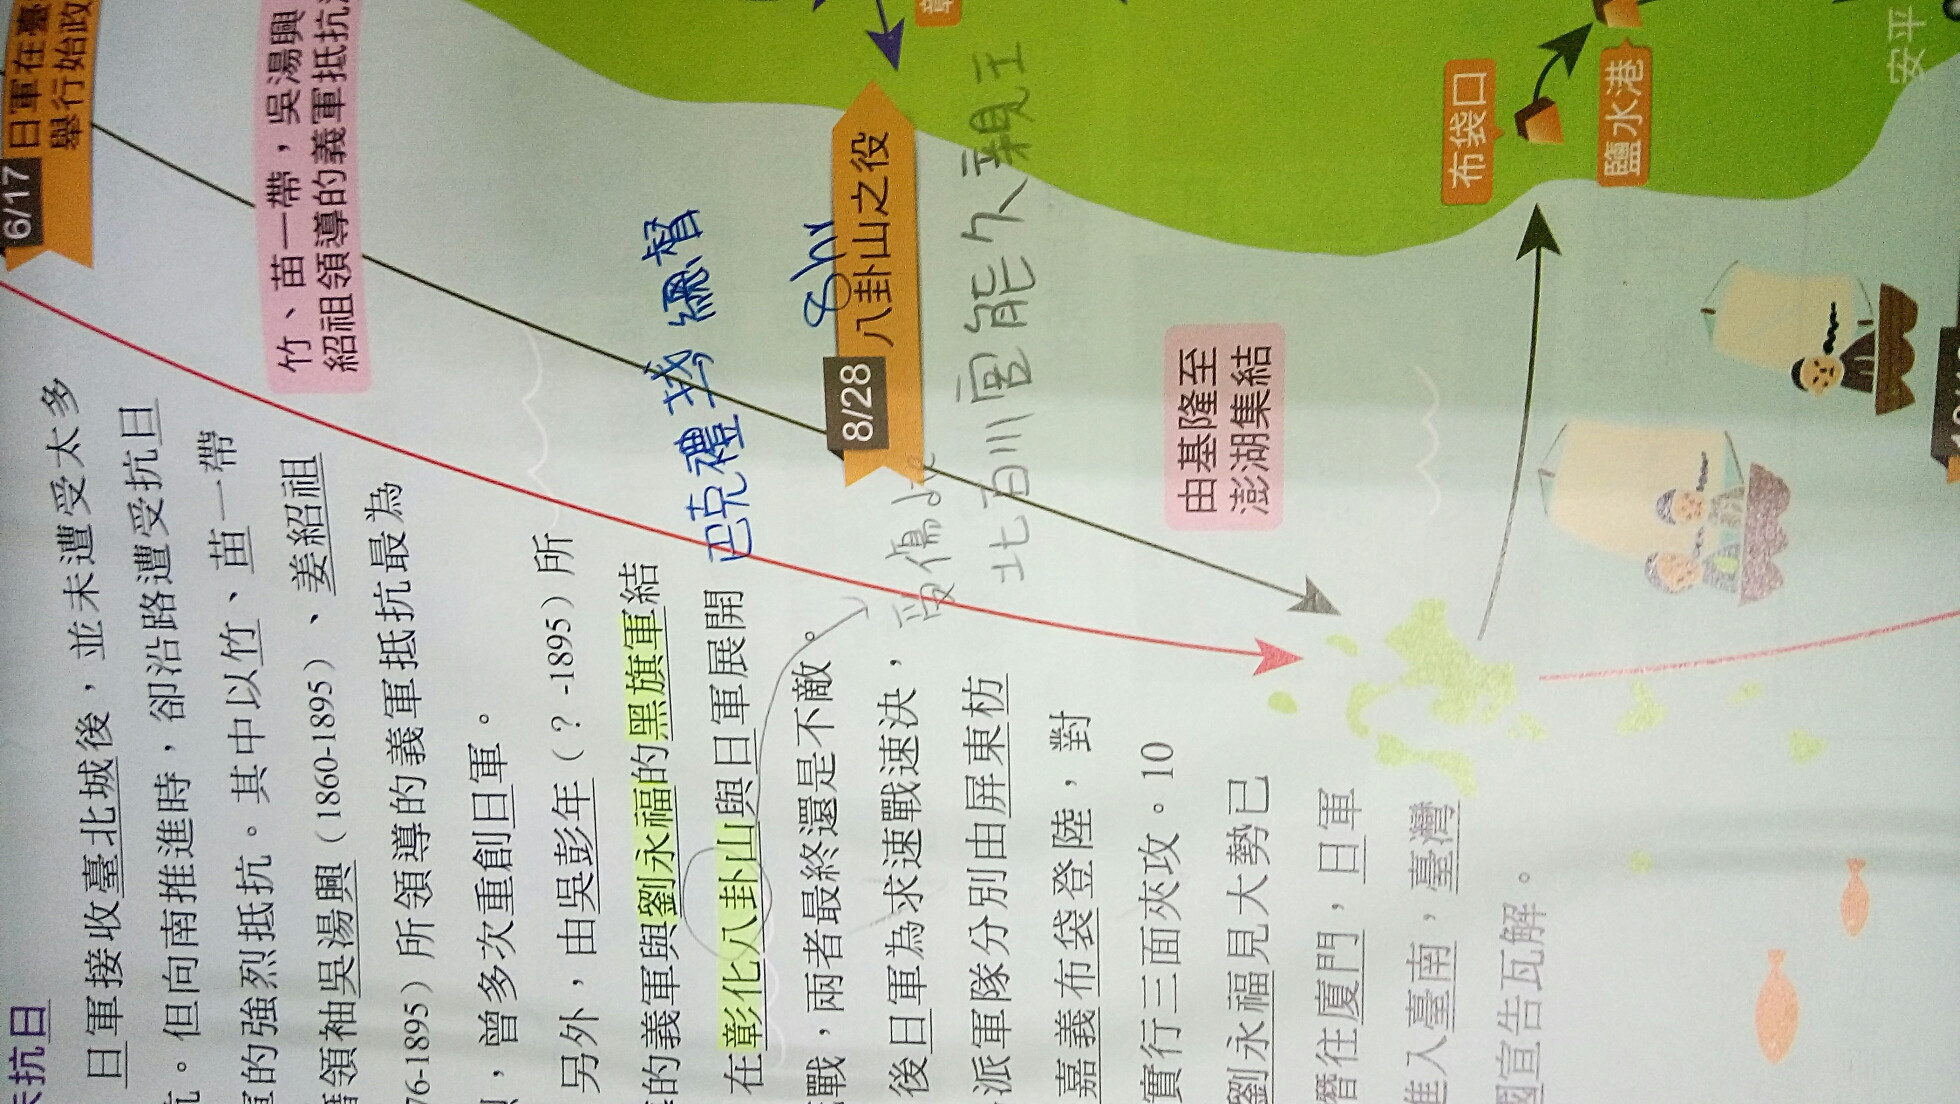 抗日
日軍接收臺北城後，並未遭受太多
抗。但向南推進時，卻沿路遭受抗日
軍的強烈抵抗。其中以竹、苗一帶
領袖吳湯興（1860-1895）、姜紹祖
76-1895）所領導的義軍抵抗最為
，曾多次重創日軍。
另外，由吳彭年（？-1895）所
的義軍與劉永福的黑旗軍結
在彰化八卦山與日軍展開
戰，兩者最終還是不敵。
後日軍為求速戰速決，
派軍隊分別由屏東枋
嘉義布袋登陸，對
實行三面夾攻。10
劉永福見大勢已
潛往廈門，日軍
進入臺南，臺灣
國宣告瓦解。
6/17
日軍在臺
舉行始政
竹、苗一帶，吳湯興
紹祖領導的義軍抵抗
巴克禮 找 總督
8/28
八卦山之役
受傷
北白川宮能久親王
由基隆至
澎湖集結
布袋口
鹽水港
安平